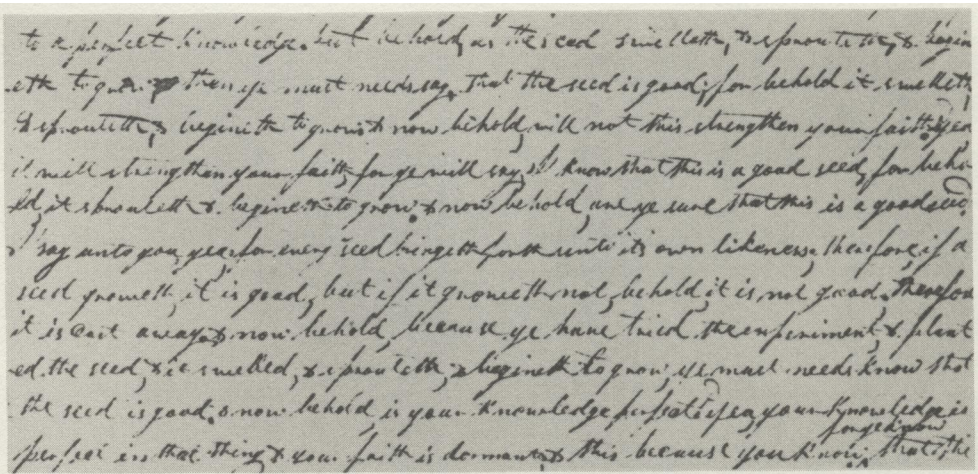 to a perfect knowledge. but behold, as the seed swelleth, & sprouteth, & begin
eth to grow then ye must needs say, that the seed is good; for behold it swelleth,
& sprouteth, & begineth to grow & now behold, will not this strengthen your faith, yea
it will strengthen your faith, for ye will say, I know that this is a good seed, for beho
ld, it sprouteth & begineth to grow. & now behold, are ye sure that this is a good seed,
I say unto you, yea, for every seed bringeth forth unto its own likeness; therefore, if a
seed groweth, it is good, but if it groweth not, behold, it is not good. therefore
it is cast away & now behold, because ye have tried the experiment, & plant
ed the seed, & it swelled, & sprouteth, & begineth to grow, ye must needs know that
the seed is good. & now behold is your knowledge perfect, yea, your knowledge is
perfect in that thing & your faith is dormant, & this because you know, that the
for ye know